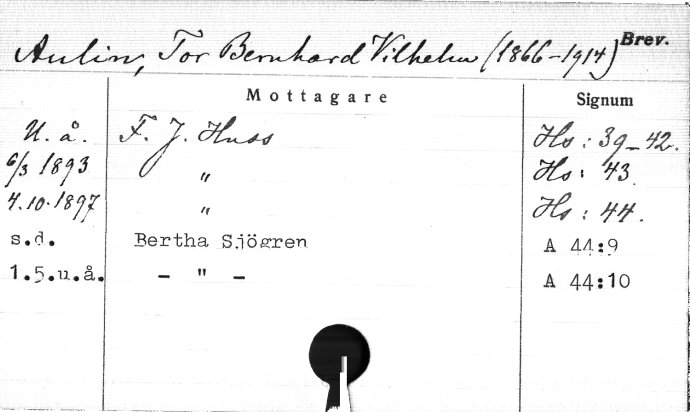 Aulin, Tor Bernhard Vilhelm (1866-1914) Brev.
Mottagare Signum
U. å. F. J. Huss Hs: 39-42.
6/3 1893 " Hs: 43
4.10.1897 " Hs: 44.
s.d. Bertha Sjögren A 44:9
1.5.u.å. - " - A 44:10